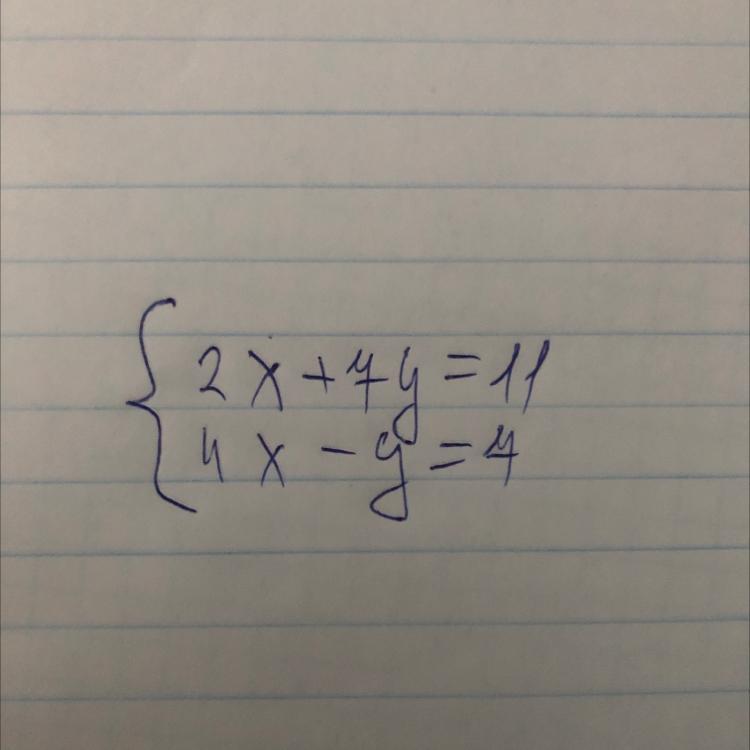 2x+7y=11
4x-y=7